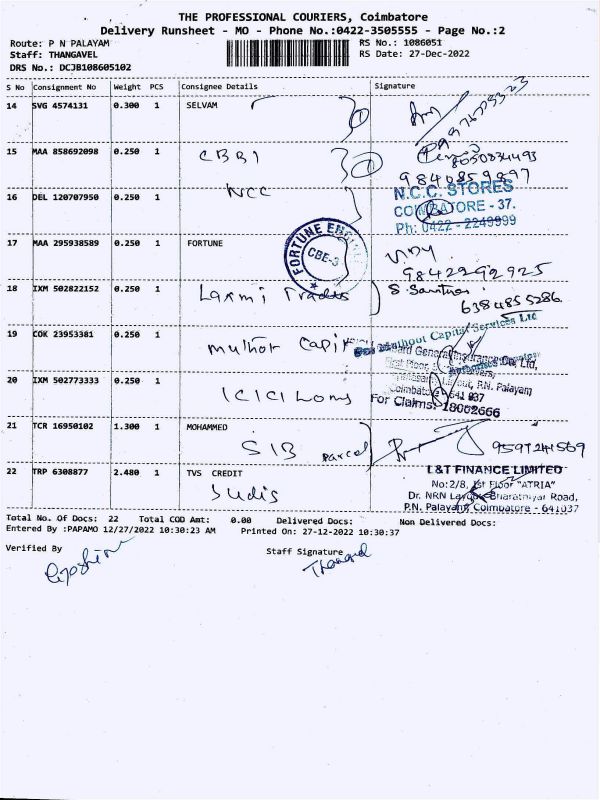 THE PROFESSIONAL COURIERS, Coimbatore
Delivery Runsheet - MO - Phone No.:0422-3505555 - Page No.:2
Route: P N PALAYAM RS No.: 1086051
Staff: THANGAVEL RS Date: 27-Dec-2022
DRS No.: DCJB108605102
S No Consignment No Weight PCS Consignee Details Signature
14 SVG 4574131 0.300 1 SELVAM
15 MAA 858692098 0.250 1 CBBI
8050834493
9840859897
16 DEL 120707950 0.250 1 NCC
N.C.C. STORES
COIMBATORE - 37.
Ph: 0422 - 2249999
17 MAA 295938589 0.250 1 FORTUNE
FORTUNE
CBE-3
9842292925
18 IXM 502822152 0.250 1 Laxmi Traders
6384855286
19 COK 23953381 0.250 1 muthot Capit
Muthoot Capital Services Ltd
20 IXM 502773333 0.250 1 ICICI Lom
P.N. Palayam
Coimbatore 641 037
For Claims: 18002666
21 TCR 16950102 1.300 1 MOHAMMED
SIB parcel
22 TRP 6308877 2.480 1 TVS CREDIT
Sudis
L&T FINANCE LIMITED
No:2/8, 1st Floor "ATRIA"
Dr. NRN Layout, Bharathiyar Road,
P.N. Palayam, Coimbatore - 641037
Total No. Of Docs: 22 Total COD Amt: 0.00 Delivered Docs: Non Delivered Docs:
Entered By :PAPAMO 12/27/2022 10:30:23 AM Printed On: 27-12-2022 10:30:37
Verified By Staff Signature
Thangavel